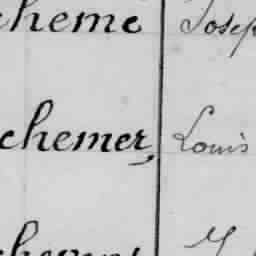 cheme Josep
chemer, Louis